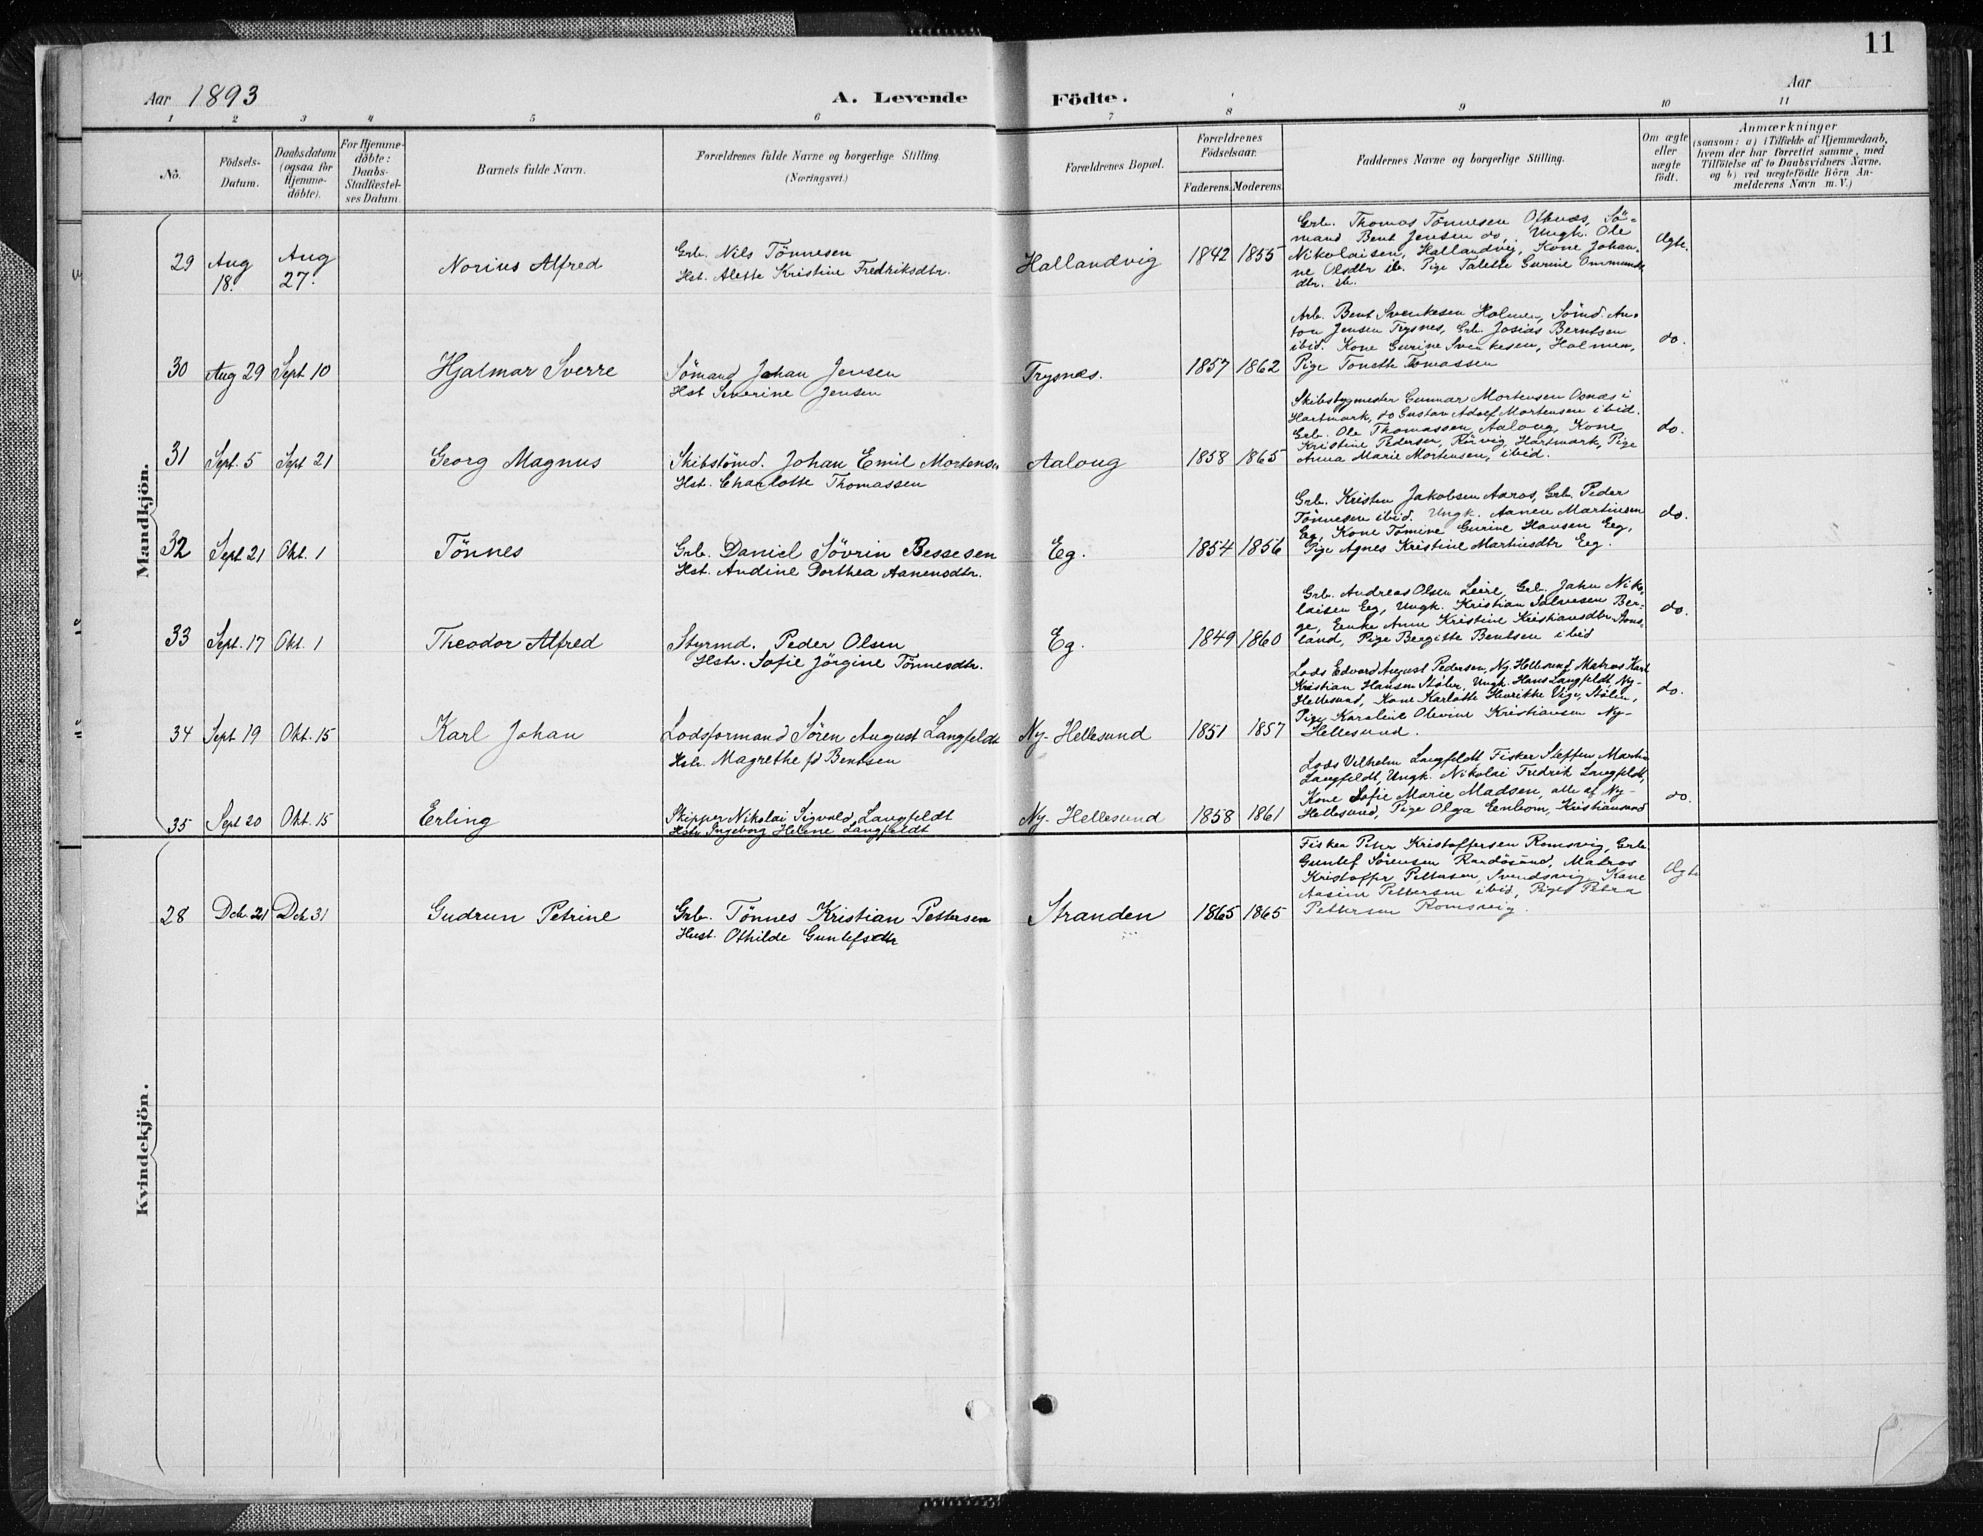 11
Aar 1893
A. Levende Födte.
Aar
1 2 3 4 5 6 7 8 9 10 11
No.
Födsels-Datum.
Daabsdatum (ogsaa for Hjemme-döbte).
For Hjemme-döbte: Daabs-Stadfæstel-ses Datum.
Barnets fulde Navn.
Forældrenes fulde Navne og borgerlige Stilling. (Næringsvei.)
Forældrenes Bopæl.
Forældrenes Födselsaar.
Faderens. Moderens.
Faddernes Navne og borgerlige Stilling.
Om ægte eller uægte födt.
Anmærkninger
(saasom: a) i Tilfælde af Hjemmedaab,
hvem der har forrettet samme, med
Tilföielse af to Daabsvidners Navne,
og b) ved uægtefödte Börn An-
melderens Navn m. V.)
Mandkjön.
29 Aug 18. Aug 27. Norius Alfred
Grb. Nils Tönnesen
Hst. Alette Kristine Fredriksdtr.
Hallandvig 1842 1855
Grb. Thomas Tönnesen Ofteræs, Sö-
mand Bent Jensen do, Ungk. Ole
Nikolaisen, Hallandvig, Kone Johan-
ne Olsdtr ib. Pige Talette Gurine Ommunds
dtr. ib.
Ægte.
30 Aug 29 Sept 10 Hjalmar Sverre
Sömand Johan Jensen
Hst Severine Jensen
Trysnes. 1857 1862
Arb. Bent Svenkesen Holmen, Sömd. An-
ton Jensen Trysnes, Grb. Josias Berntsen
ibid. Kone Gurine Svenkesen, Holmen,
Pige Tonette Tomassen
do.
31 Sept. 5 Sept 21 Georg Magnus
Skibstömd. Johan Emil Mortensen
Hst. Charlotte Thomassen
Aaloug 1858 1865
Skibsbygmester Gunnar Mortensen Osnas i
Hartmark, do Gustav Adolf Mortensen ibid.
Grb. Ole Thomassen Aaloug, Kone
Kristine Pedersen, Rörvig Hartmark, Pige
Anna Marie Mortensen, ibid.
do.
32 Sept 21 Okt. 1 Tönnes
Grb. Daniel Sövrin Bessesen
Hst. Andine Dorthea Aanensdtr.
Eg. 1854 1856
Grb. Kristen Jakobsen Aaros, Grb. Peder
Tönnesen ibid. Ungk. Aanen Martinsen
Eg, Kone Tomine Gurine Hansen Eeg,
Pige Agnes Kristine Martinsdtr Eeg.
do.
33 Sept. 17 Okt. 1 Theodor Alfred
Styrmd. Peder Olsen
Hstr. Sofie Jörgine Tönnesdtr.
Eg. 1849 1860
Grb. Andreas Olsen Leire, Grb. Jahn Niko-
laisen Eeg, Ungk. Kristian Salvesen Ber-
ge, Enke Anne Kristine Kristiansdtr
land, Pige Bergitte Bentsen ibid
do.
34 Sept 19 Okt. 15 Karl Johan
Lodsformand Sören August Langfeldt
Hstr. Magrethe fd Bentsen
Ny-Hellesund 1851 1857
Lods Edvard August Pedersen, Ny Hellesund, Matros Karl
Kristian Hansen Stölen, Ungk. Hans Langfeldt, Ny-
Hellesund, Kone Karlotte Henrikke Vige, Stölen,
Pige Karoline Olevine Kristiansen Ny-
Hellesund.
do.
35 Sept 20 Okt. 15 Erling
Skipper Nikolai Sigvald Langfeldt
Hstr. Ingeborg Helene Langfeldt
Ny. Hellesund 1858 1861
Lods Vilhelm Langfeldt, Fisker Steffen Martin
Langfeldt, Ungk. Nikolai Fredrik Langfeldt,
Kone Sofie Marie Madsen, alle af Ny-
Hellesund, Pige Olga Eenhom, Kristiansand
do.
Kvindekjön.
28 Dcb. 21 Dcb 31 Gudrun Petrine
Grb. Tönnes Kristian Pettersen
Hust. Othilde Gunlefsdtr
Stranden 1865 1865
Fisker Petter Kristoffersen Romsvig, Grb.
Gunlef Sörensen Randösund, Matros
Kristoffer Pettersen, Svendsvig, Kone
Aasine Pettersen ibid, Pige Petra
Pettersen Romsvig.
Ægte